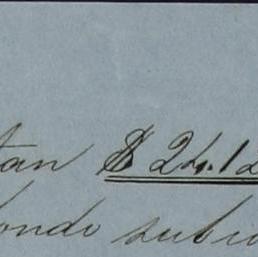 tan $ 24.12
ondo subi